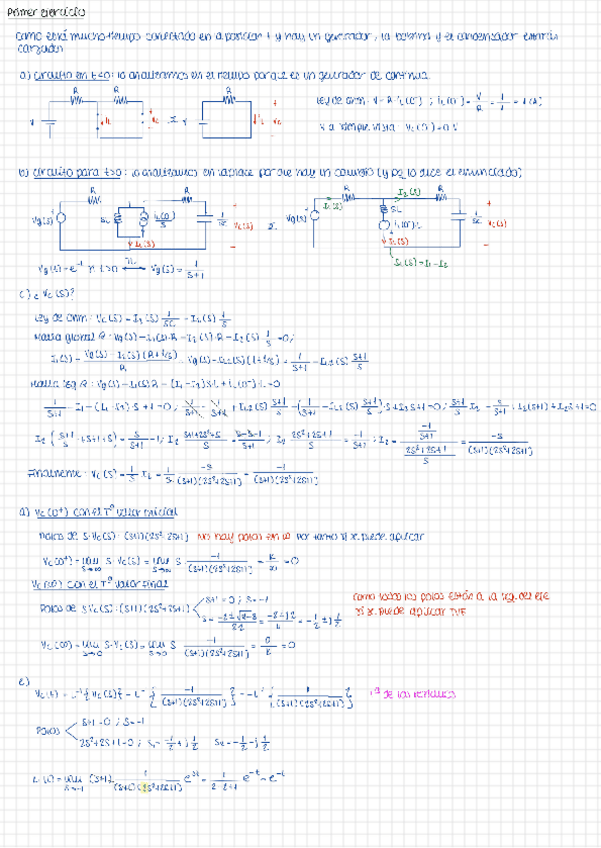 Primer ejercicio
como está mucho tiempo conectado en la posición 1 y hay un generador, la bobina y el condensador estarán
cargados
a) Circuito en t<0: lo analizamos en el tiempo porque es un generador de continua.
R R R
V
Ley de ohm: V = R·iL(0⁻) ; iL(0⁻) = V/R = 1/1 = 1 (A)
simple vista: Vc(0⁻) = 0 V
b) Circuito para t>0: lo analizamos en Laplace porque hay un (y pq lo dice el enunciado)
R R R R
Vg(s) SL 1/SC Vc(s) Vg(s) I1(s) I2(s) SL 1/SC Vc(s)
IL(s) IL(s)
IL(s) = I1 - I2
Vg(t) = e⁻ᵗ t>0 Vg(s) = 1/(s+1)
c) ¿Vc(s)?
Ley de Ohm: Vc(s) = I2(s) 1/SC = I2(s) 1/s
Malla global: Vg(s) - I1(s)·R - I2(s)·R - I2(s) 1/s = 0;
I1(s) = (Vg(s) - I2(s)(R+1/s))/R = Vg(s) - I2(s)(1+1/s) = 1/(s+1) - I2(s) (s+1)/s
Malla izq: Vg(s) - I1(s)·R - (I1-I2)·SL + iL(0⁻)·L = 0
1/(s+1) - I1 - (I1-I2)·s + 1 = 0;
Finalmente: Vc(s) = 1/s I2 = 1/s · -s/((s+1)(2s²+2s+1)) = -1/((s+1)(2s²+2s+1))
d) Vc(0⁺) con el Tª valor inicial
Polos de S·Vc(s): (s+1)(2s²+2s+1) No hay polos en ∞ por tanto sí se puede aplicar
Vc(0⁺) = lim s→∞ S·Vc(s) = lim s→∞ s · -1/((s+1)(2s²+2s+1)) = K/∞ = 0
Vc(∞) con el Tª valor final
Polos de S·Vc(s): (s+1)(2s²+2s+1) s+1=0; s=-1
s = (-2±√(4-8))/(2·2) = (-2±j2)/4 = -1/2 ± j 1/2
como todos los polos están a la izq. del eje
sí se puede aplicar TVF
Vc(∞) = lim s→0 S·Vc(s) = lim s→0 s · -1/((s+1)(2s²+2s+1)) = 0/K = 0
e)
Vc(t) = L⁻¹{Vc(s)} = L⁻¹{-1/((s+1)(2s²+2s+1))} = -L⁻¹{1/((s+1)(2s²+2s+1))} Tª de los residuos
Polos s+1=0; s=-1
2s²+2s+1=0; s1 = -1/2 + j 1/2 s2 = -1/2 - j 1/2
lim s→-1 (s+1) 1/((s+1)(2s²+2s+1)) eˢᵗ = 1/(2-2+1) e⁻ᵗ = e⁻ᵗ